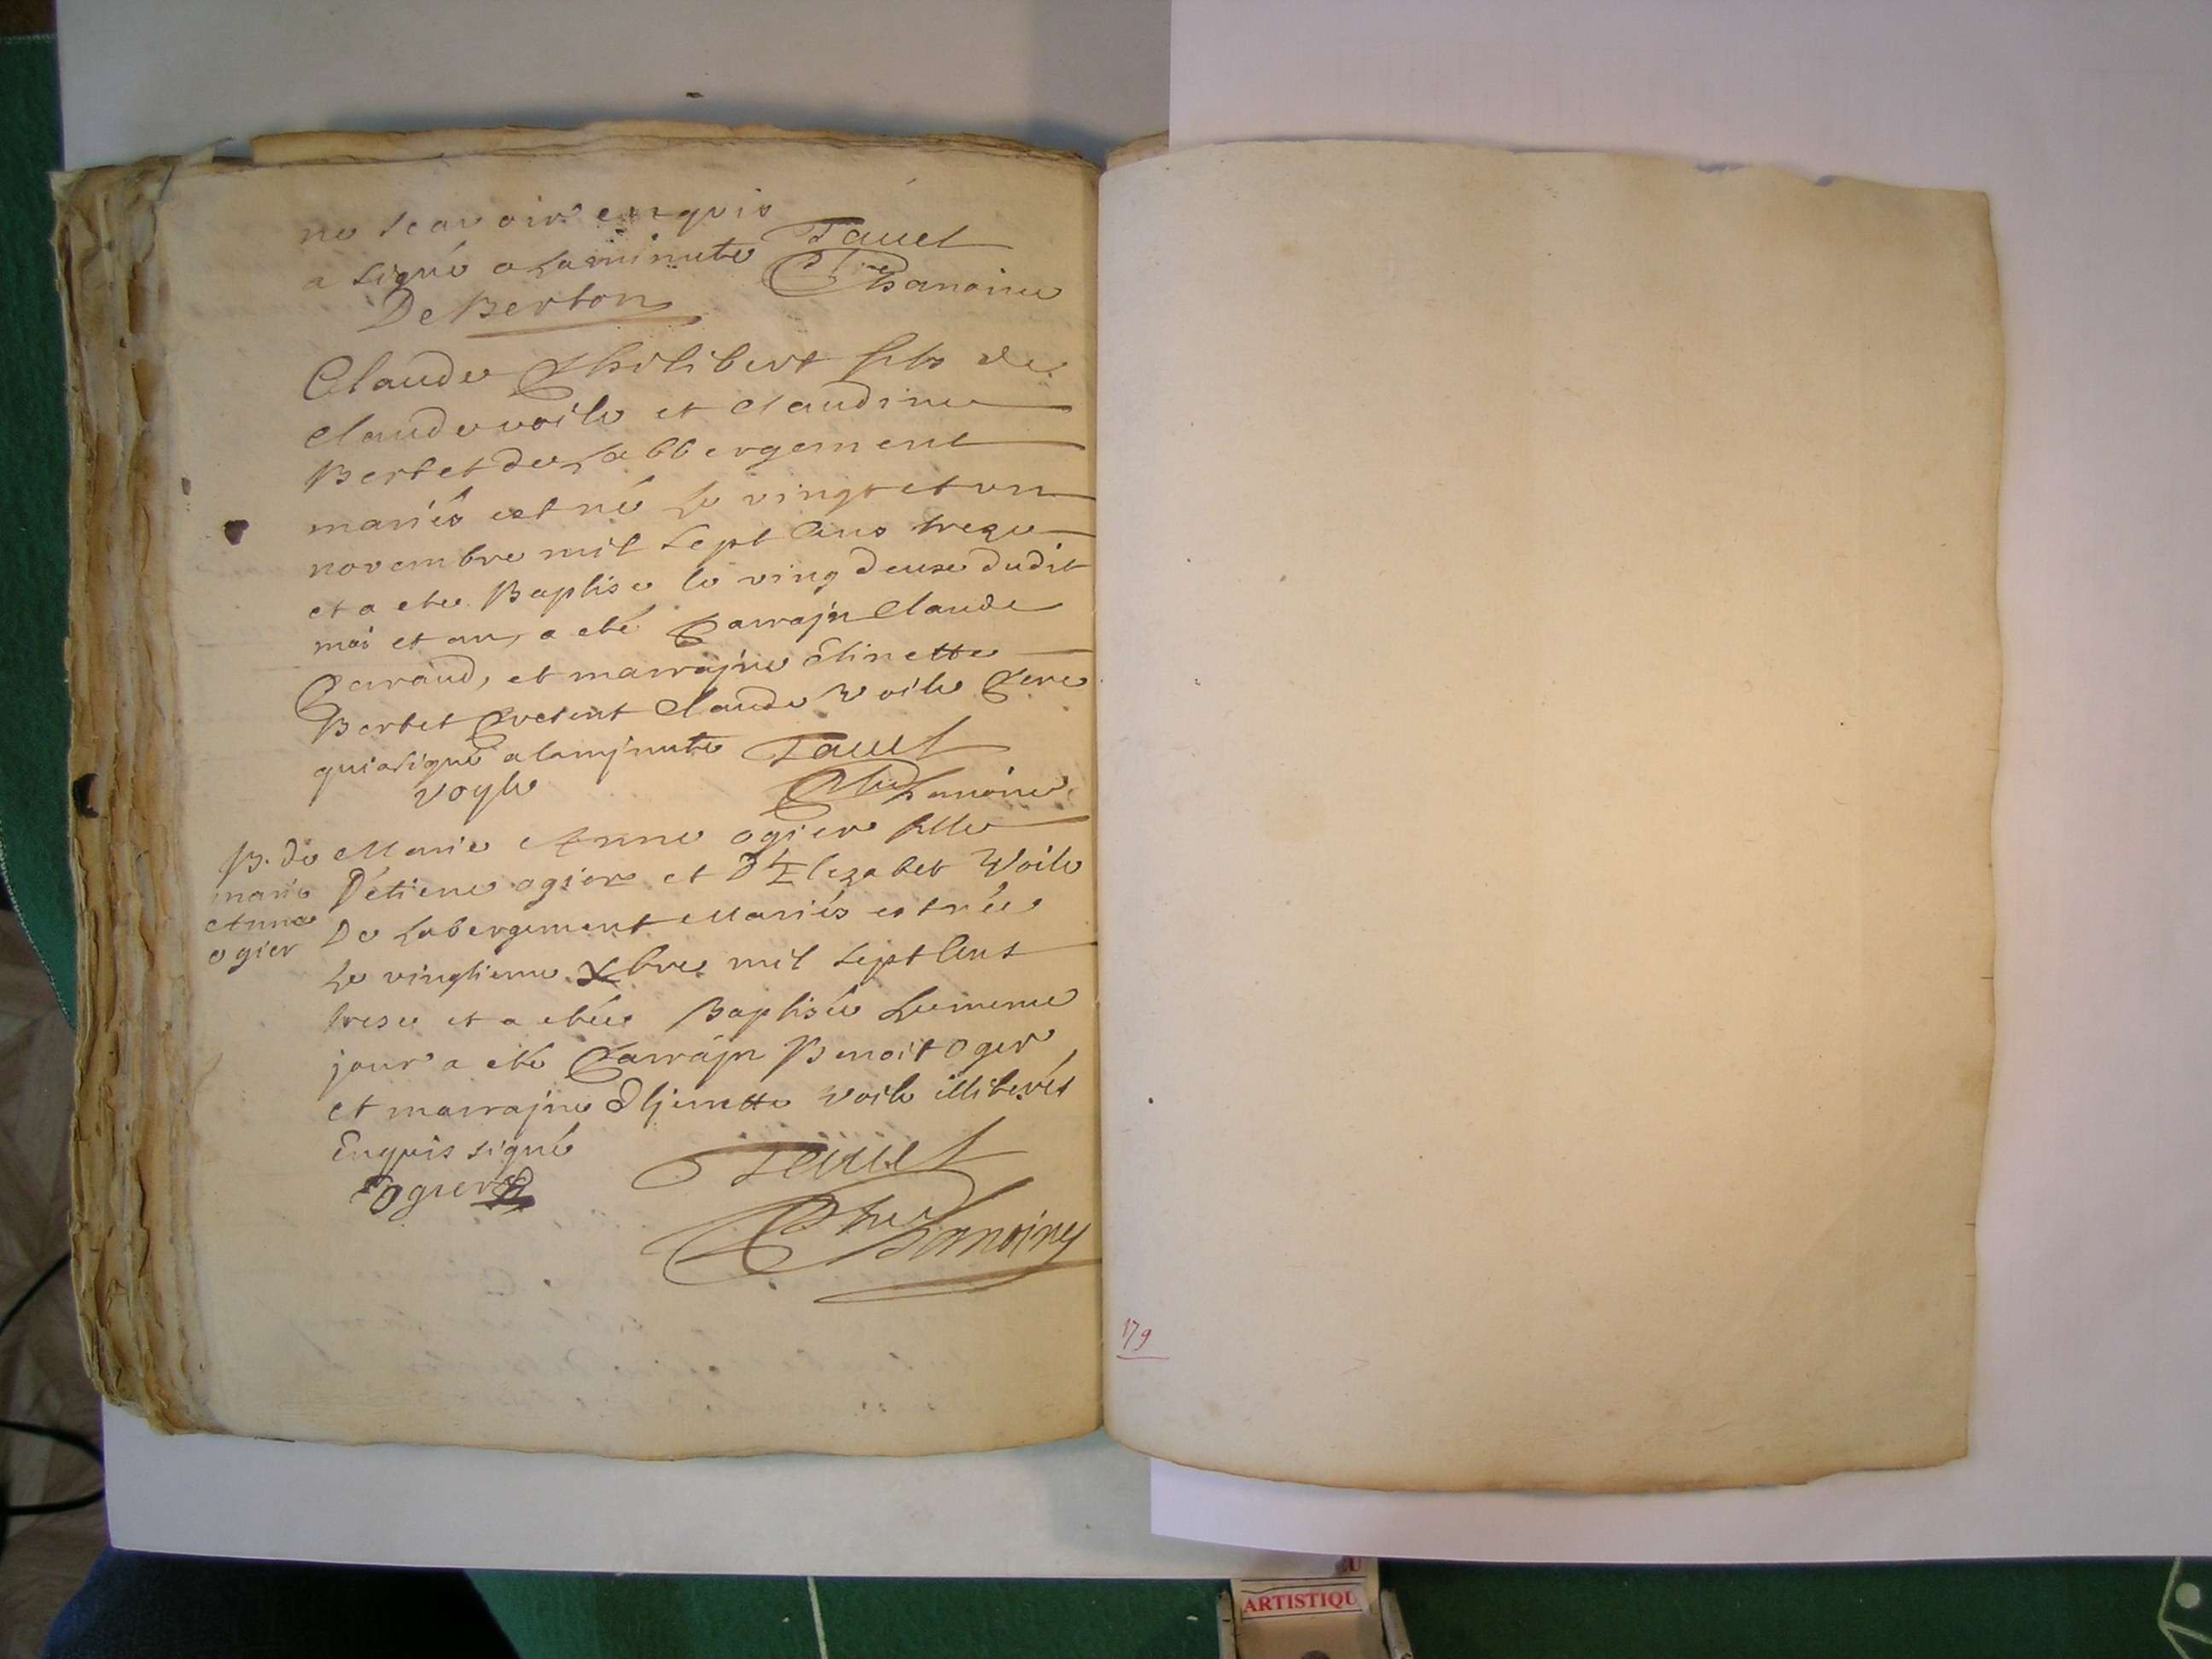 ne scavoir enquis
a signé a la minute Favel
De Berton Chanoine
Claude Philibert fils de
Claude voile et Claudine
Berbet de Labbergement
mariés est né le vingt et un
novembre mil sept Cens treze
et a ete Baptise le ving deuxe dudit
moi et an, a eté Parrajn Claude
Garaud, et marrajne Elinette
Berbet Present Claude Voile Pere
qui a signé a la mjnute Favel
voyle Chanoine
B. de Marie Anne ogier fille
marie D'etiene ogier et d'Elezabet Voile
Anne De Labergement Mariés est née
ogier Le vingtieme Xbre mil sept Cent
trese et a etée Baptisée le meme
jour a eté Parrajn Benoit Oger
et marrajne voile illiterés
Enquis signé
Ogier Favel
Chanoine
179
ARTISTIQU